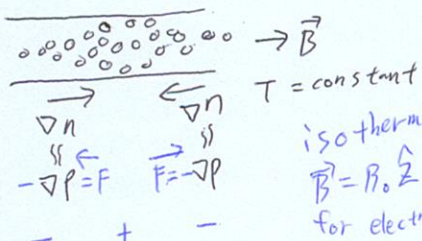 → B⃗
→ ← T = constant
∇n ∇n
isotherm
-∇P=F F=-∇P
B⃗ = B₀ ẑ
for elect
- + -